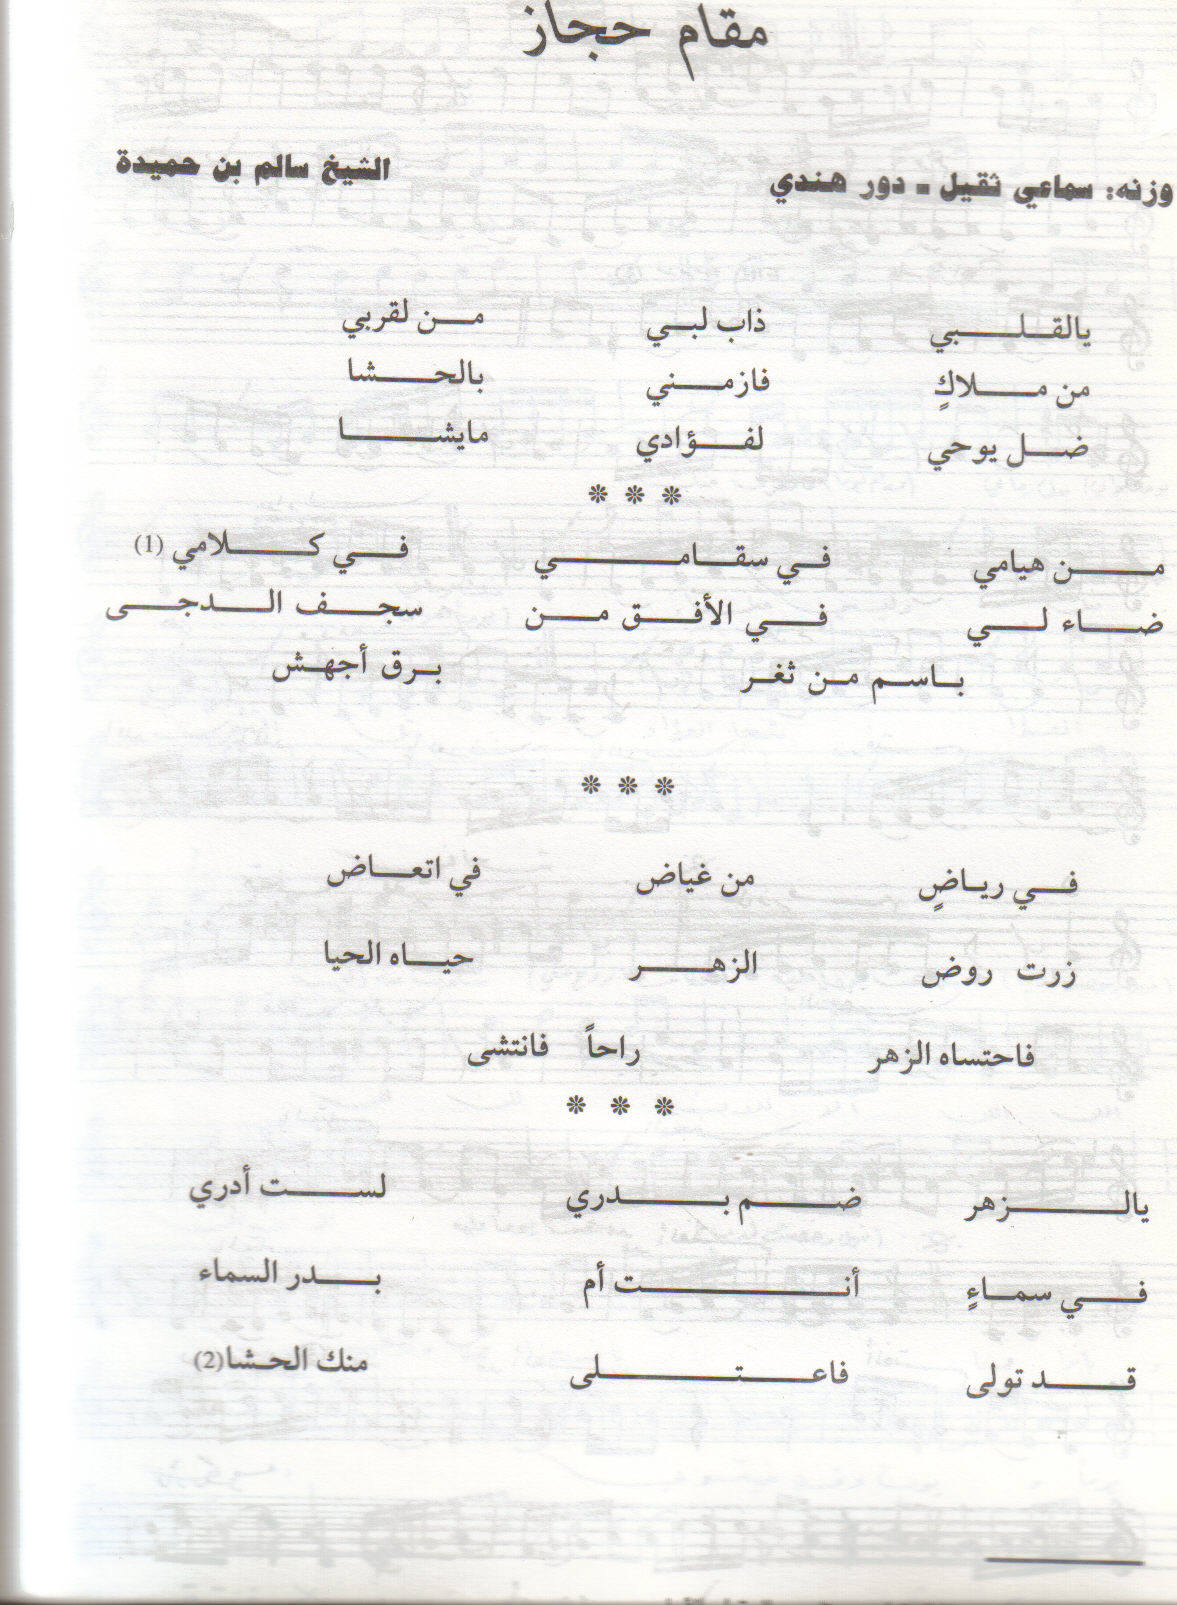 مقام حجاز
وزنه: سماعي ثقيل - دور هندي الشيخ سالم بن حميدة
يالقلبي ذاب لبي من لقربي
من ملاكٍ فازمني بالحشا
ضل يوحي لفؤادي مايشا
* * *
من هيامي في سقامي في كلامي (1)
ضاء لي في الأفق من سجف الدجى
باسم من ثغر برق أجهش
* * *
في رياضٍ من غياض في اتعاض
زرت روض الزهر حياه الحيا
فاحتساه الزهر راحاً فانتشى
* * *
يالزهر ضم بدري لست أدري
في سماءٍ أنت أم بدر السماء
قد تولى فاعتلى منك الحشا(2)